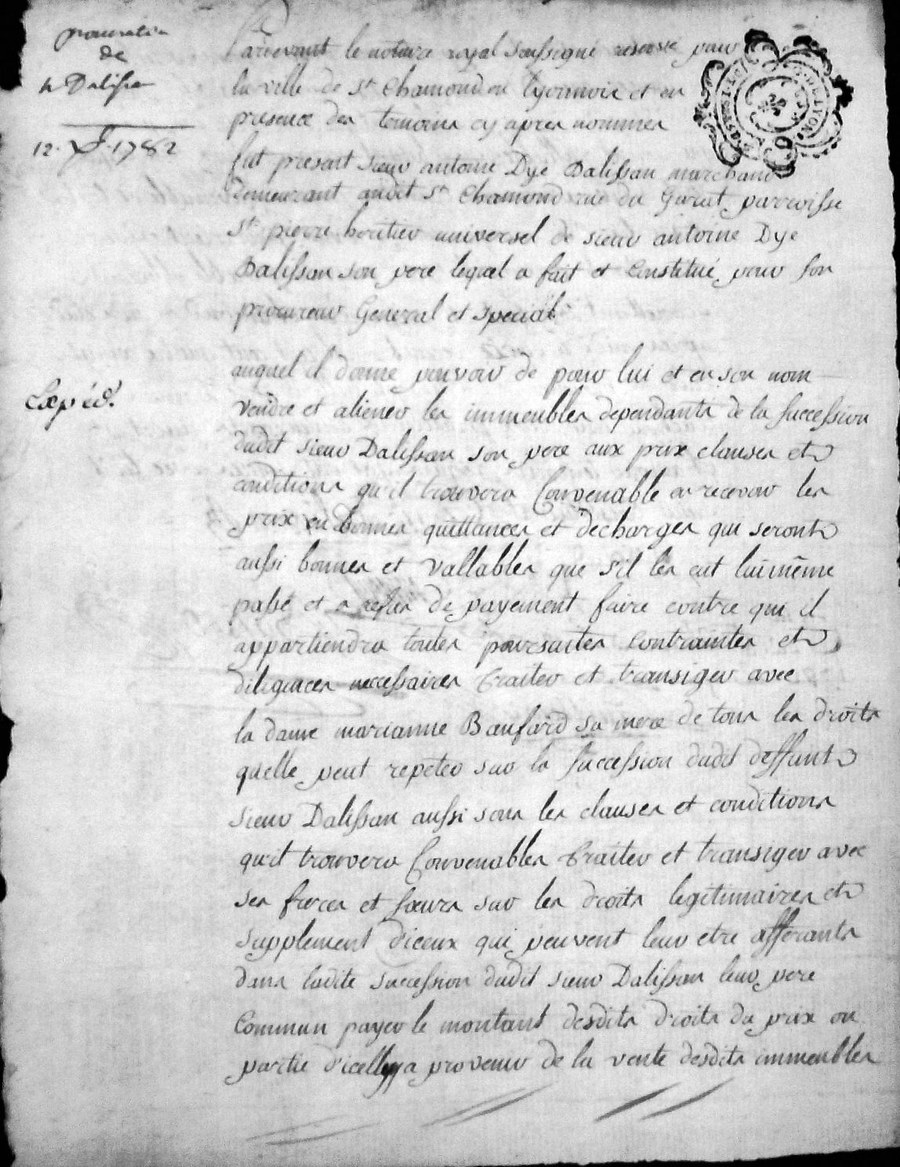 procuration
de
Sr Dalissan
12. 1782
Parevant le notaire royal soussigné reservé pour
la ville de St Chamond en Lyonnois et en
presence des temoins cy apres nommés
fut present sieur antoine Dye Dalissan marchand
demeurant audit St Chamond rue du Garat parroisse
St pierre heritier universel de sieur antoine Dye
Dalissan son pere lequel a fait et Constitué pour son
procureur General et special
Expédié.
auquel il donne pouvoir de pour lui et en son nom
vendre et aliener les immeubles dependants de la succession
dudit sieur Dalissan son pere aux prix clauses et
conditions qu'il trouvera Convenable en recevoir les
prix en bonnes quittances et décharges qui seront
aussi bonnes et vallables que s'il les eut lui même
passé et a refus de payement faire contre qui il
appartiendra toutes poursuites Contraintes et
diligences necessaires Traiter et transiger avec
la dame marianne Baufard sa mere de tous les droits
quelle peut repeter sur la succession dudit deffunt
sieur Dalissan aussi sous les clauses et conditions
qu'il trouvera Convenables Traiter et transiger avec
ses freres et sœurs sur les droits legitimaires et
supplement d'iceux qui peuvent leur etre afferants
dans ladite succession dudit sieur Dalissan leur pere
Commun payer le montant desdits droits du prix ou
partie d'icelluy a provenir de la vente desdits immeubles